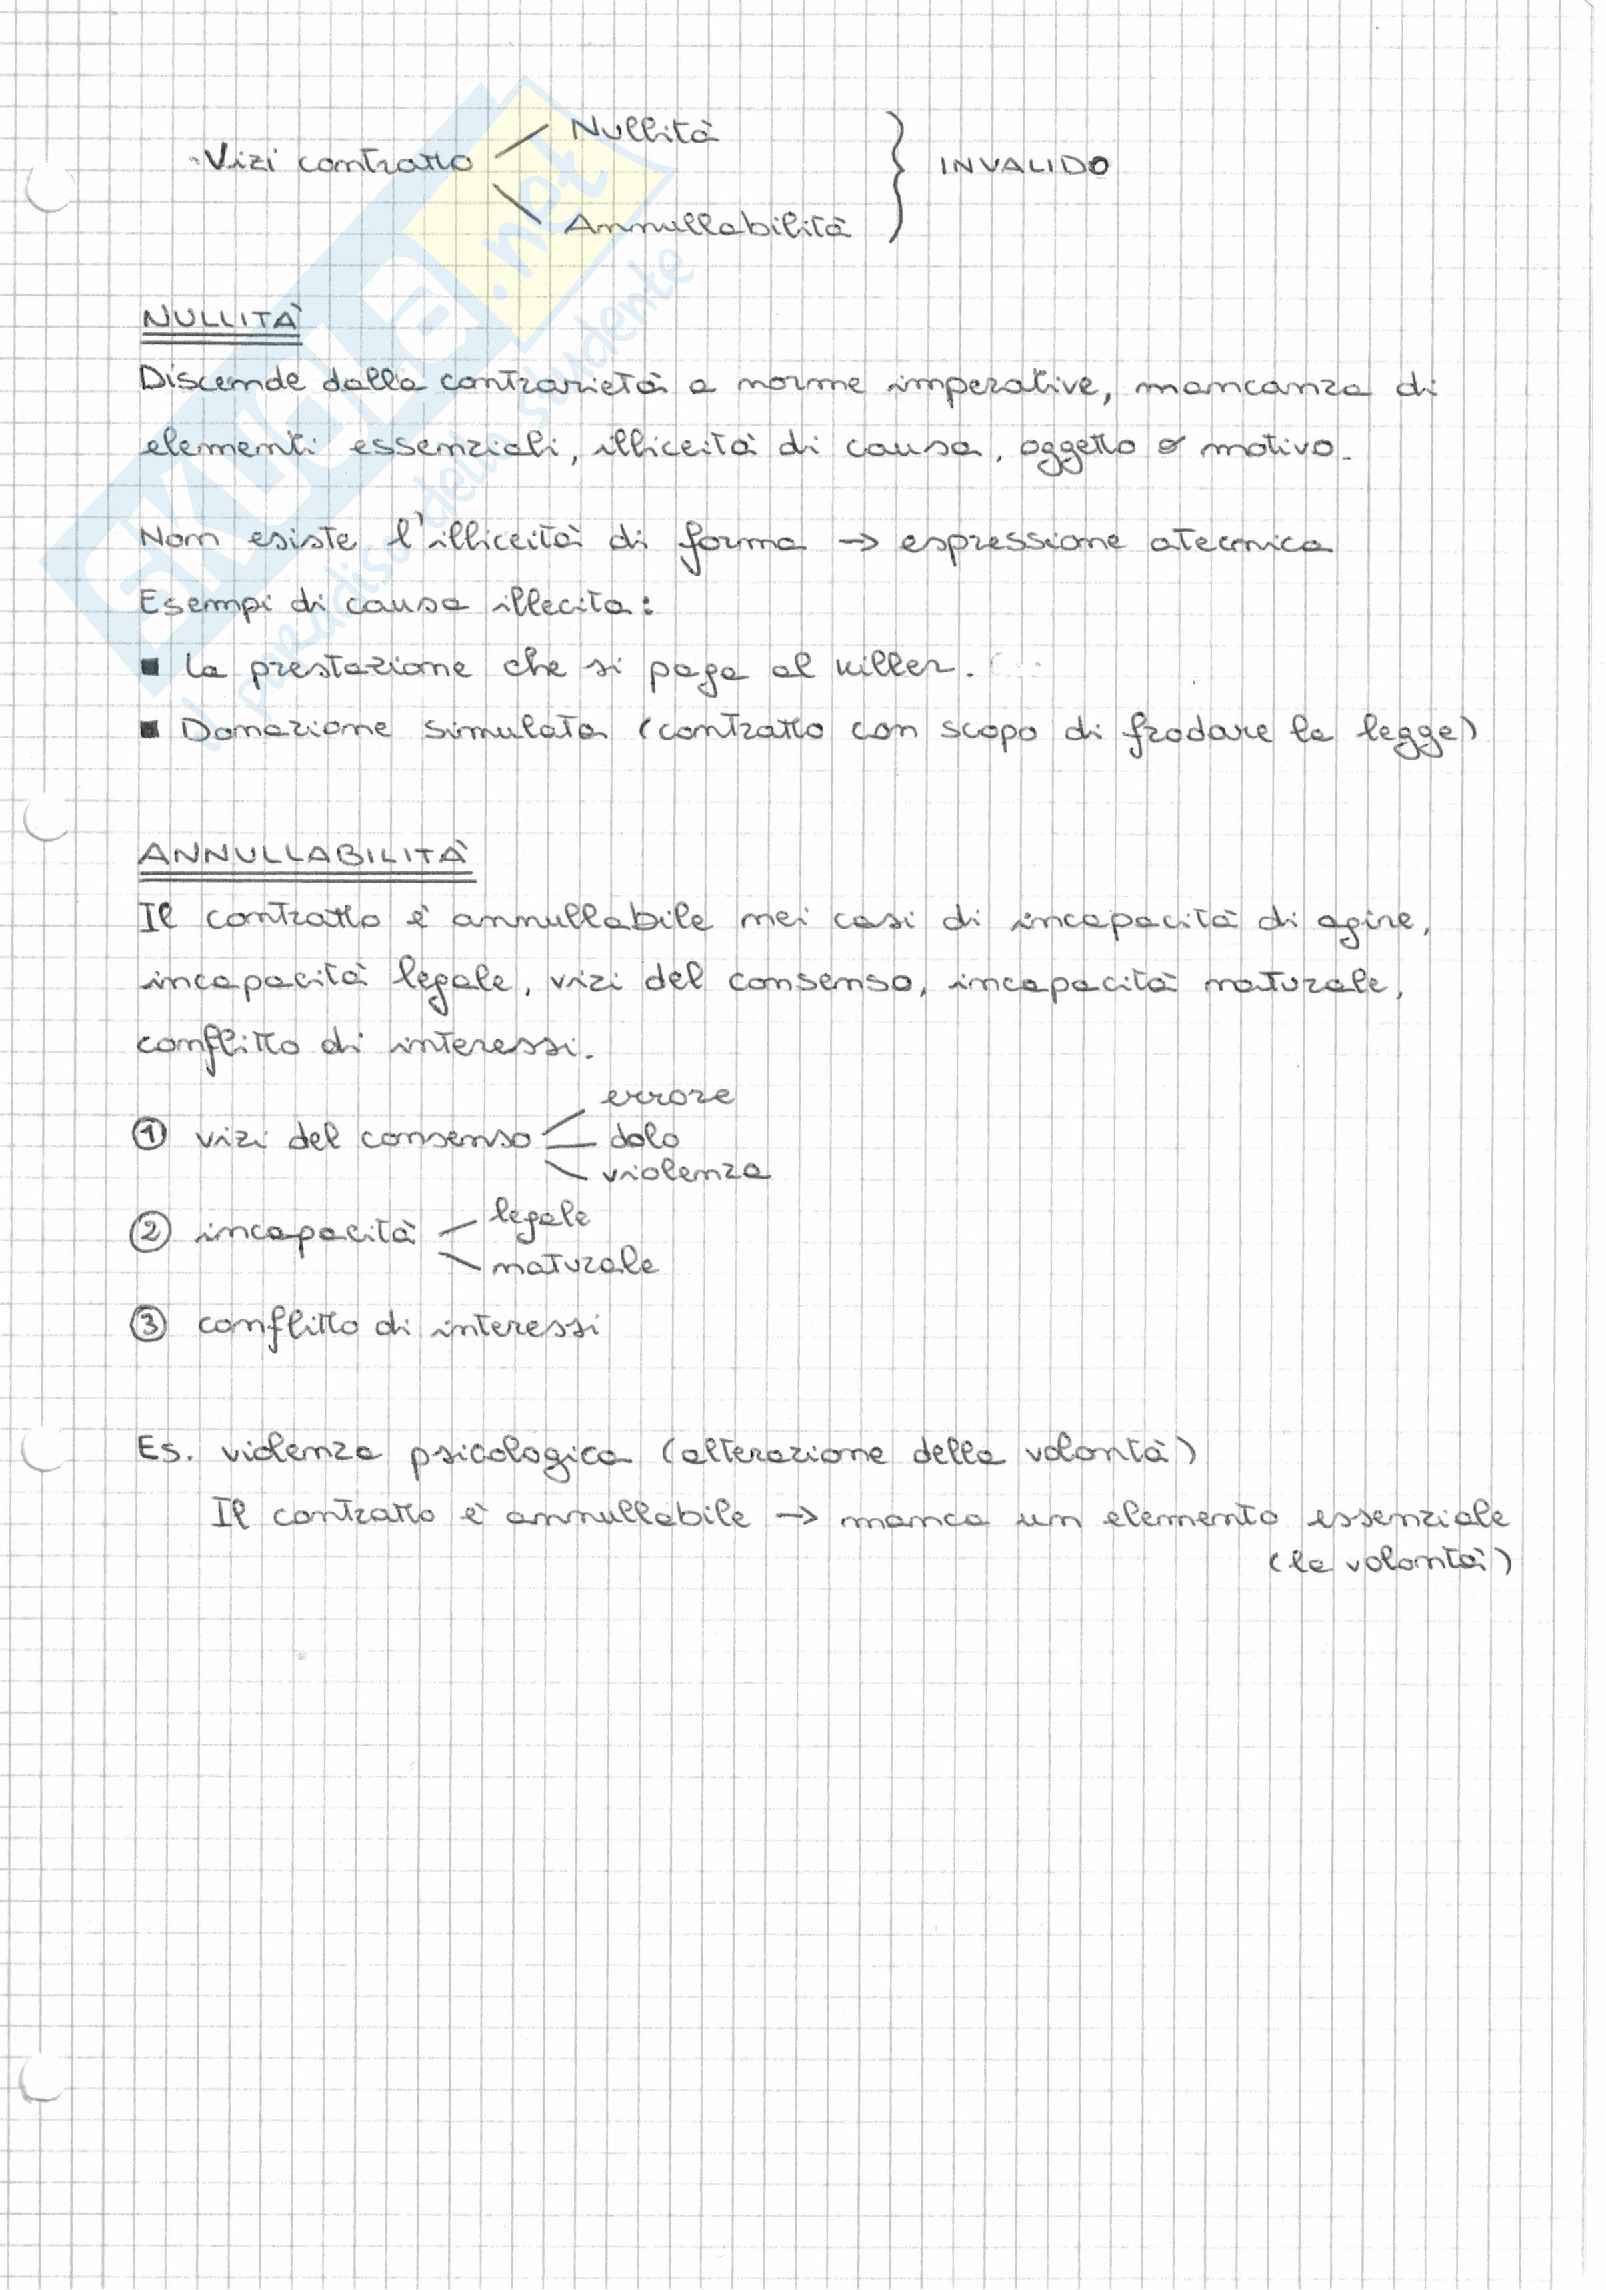 Vizi contratto
Nullità
Annullabilità
INVALIDO
NULLITÀ
Discende dalla contrarietà a norme imperative, mancanza di
elementi essenziali, illiceità di causa, oggetto o motivo.
Non esiste l'illiceità di forma → espressione atecnica
Esempi di causa illecita:
■ la prestazione che si paga al killer.
■ Donazione simulata (contratto con scopo di frodare la legge)
ANNULLABILITÀ
Il contratto è annullabile nei casi di incapacità di agire,
incapacità legale, vizi del consenso, incapacità naturale,
conflitto di interessi.
① vizi del consenso
errore
dolo
violenza
② incapacità
legale
naturale
③ conflitto di interessi
Es. violenza psicologica (alterazione della volontà)
Il contratto è annullabile → manca un elemento essenziale
(la volontà)
skuola.net
il paradiso dello studente